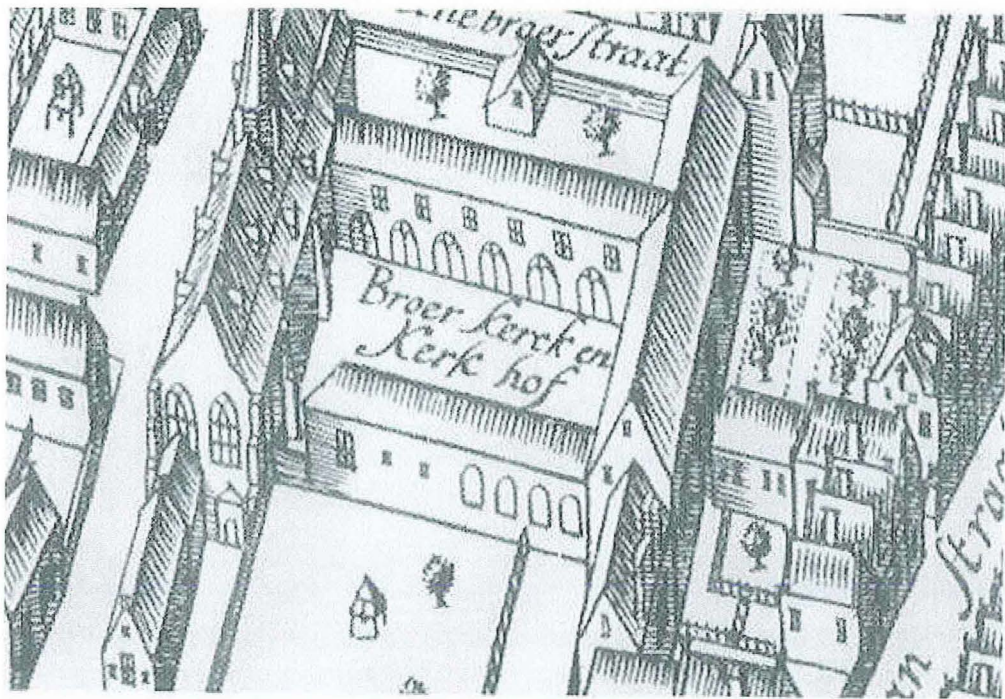 braer straat
Broer Kerck en
Kerk hof
Stra